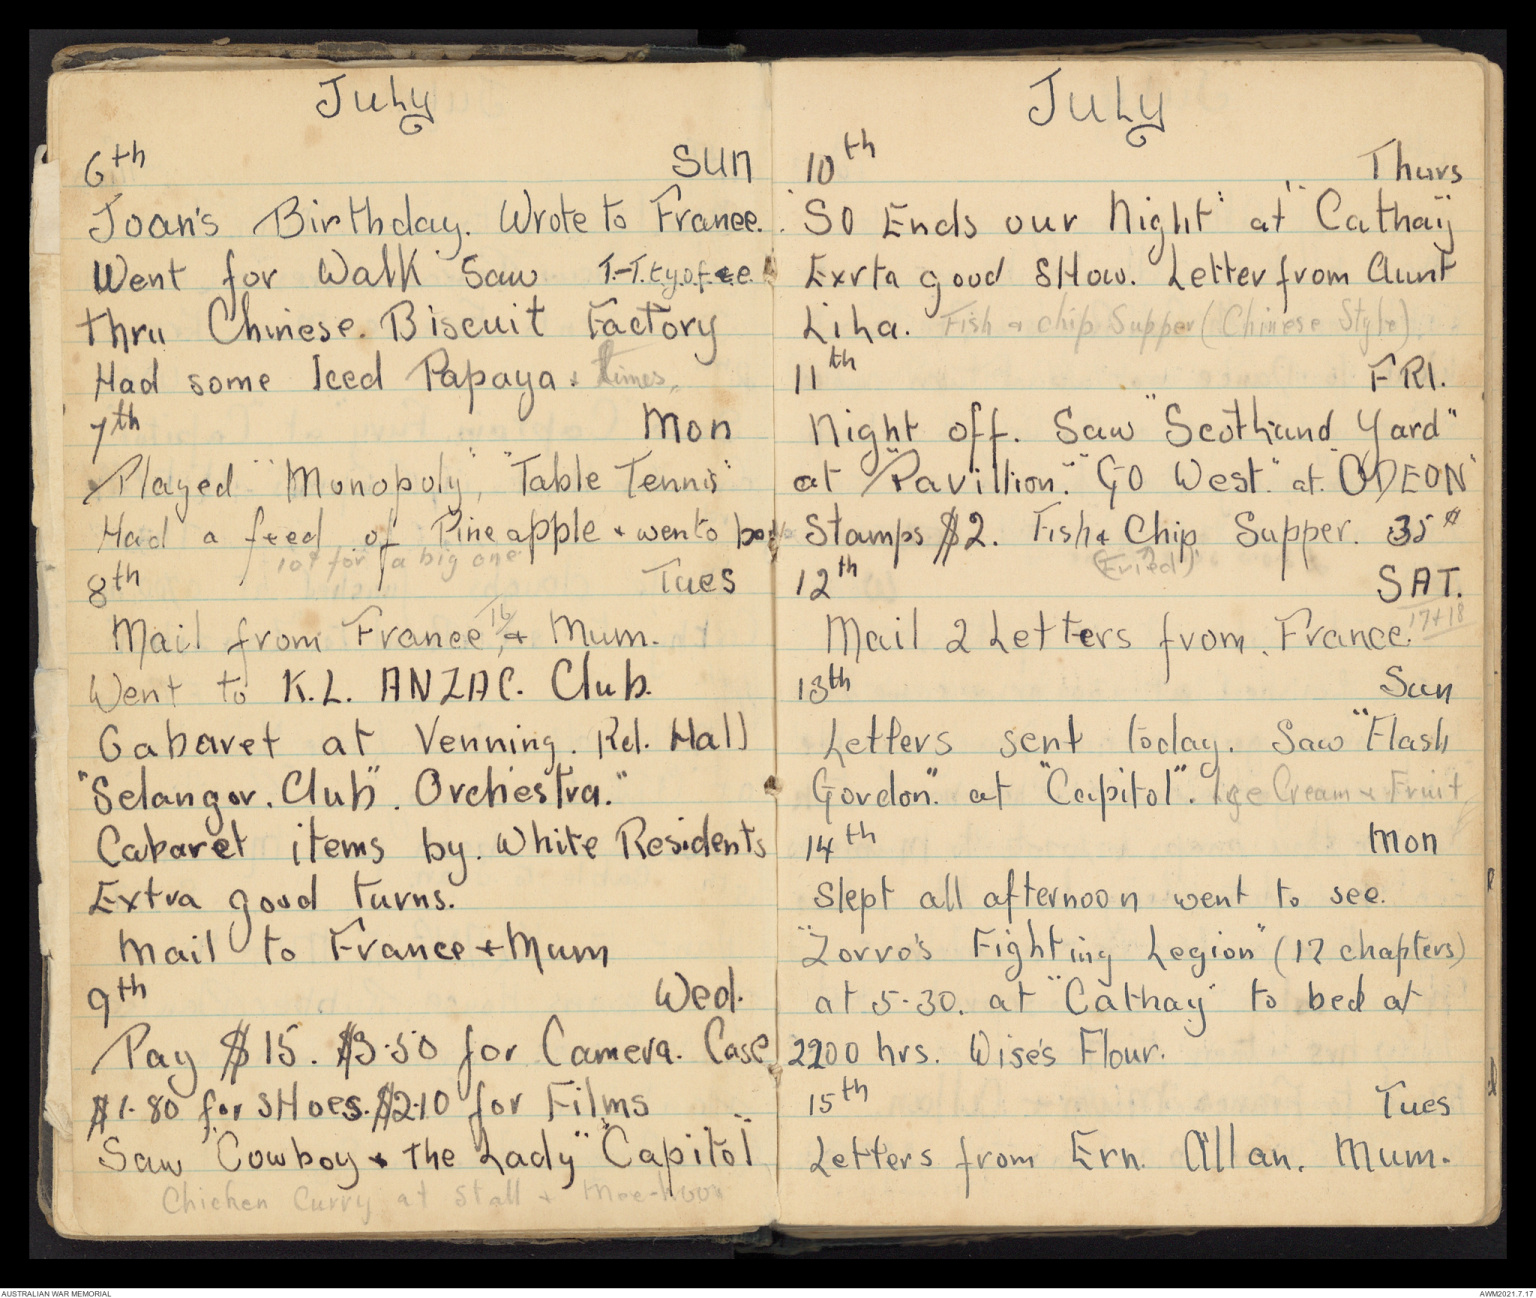 July
6th SUN
Joan's Birthday. Wrote to France.
Went for Walk Saw
thru Chinese. Biscuit Factory
Had some Iced Papaya & limes.
7th Mon
Played "Monopoly", "Table Tennis"
Had a feed of Pineapple & went to bed
not for a big one
8th Tues
Mail from France 16 & Mum.
Went to K.L. ANZAC. Club.
Cabaret at Venning. Rd. Hall
"Selangor. Club". Orchestra."
Cabaret items by. White Residents
Extra good turns.
Mail to France + Mum
9th Wed.
Pay $15. $3.50 for Camera. Case
$1.80 for SHoes. $2.10 for Films
Saw "Cowboy & the Lady" "Capitol"
Chicken Curry at Stall & Mee-hoon
July
10th Thurs
"SO Ends our Night" at "Cathay"
Exrta good SHow. Letter from Aunt
Liha. Fish & chip Supper (Chinese Style)
11th FRI.
Night off. Saw "Scothand Yard"
at "Pavillion". "GO West." at. "ODEON"
Stamps $2. Fish & Chip Supper. 35¢
(Fried)
12th SAT.
Mail 2 Letters from. France. 17+18
13th Sun
Letters sent today. Saw "Flash
Gordon." at "Capitol". Ice Cream & Fruit
14th Mon
Slept all afternoon went to see.
"Zorro's Fighting Legion" (12 chapters)
at 5.30. at "Cathay" to bed at
2200 hrs. Wise's Flour.
15th Tues
Letters from Ern. Allan. Mum.
AUSTRALIAN WAR MEMORIAL
AWM2021.7.17